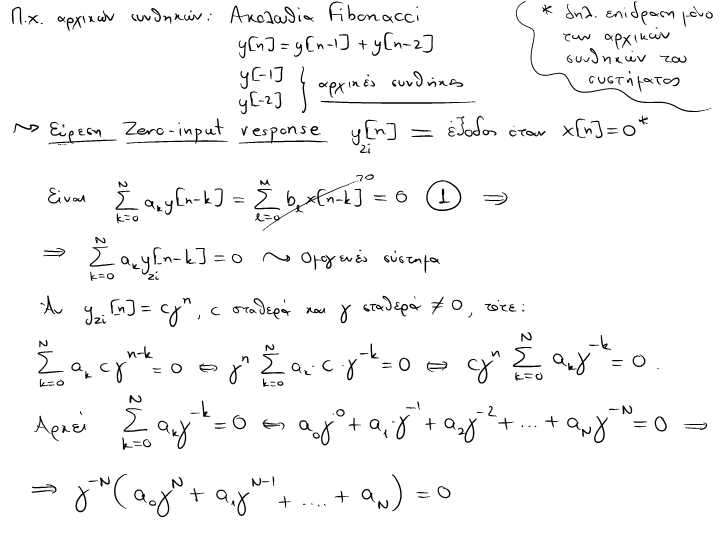 Π.χ. αρχικών συνθηκών: Ακολουθία Fibonacci
y[n] = y[n-1] + y[n-2]
y[-1]
y[-2] } αρχικές συνθήκες
* δηλ. επίδραση μόνο
των αρχικών
συνθηκών του
συστήματος
~> Εύρεση Zero-input response y_zi[n] = έξοδος όταν x[n]=0*
Είναι Σ_{k=0}^{N} a_k y[n-k] = Σ_{l=0}^{M} b_l x[n-k]→0 = 0 (1) ⇒
⇒ Σ_{k=0}^{N} a_k y_zi[n-k] = 0 ~> Ομογενές σύστημα
Αν y_zi[n] = cγ^n, c σταθερά και γ σταθερά ≠ 0, τότε:
Σ_{k=0}^{N} a_k cγ^{n-k} = 0 ⇔ γ^n Σ_{k=0}^{N} a_k · c · γ^{-k} = 0 ⇔ cγ^n Σ_{k=0}^{N} a_k γ^{-k} = 0.
Αρκεί Σ_{k=0}^{N} a_k γ^{-k} = 0 ⇔ a_0 γ^0 + a_1 · γ^{-1} + a_2 γ^{-2} + ... + a_N γ^{-N} = 0 ⇒
⇒ γ^{-N} ( a_0 γ^N + a_1 γ^{N-1} + .... + a_N ) = 0